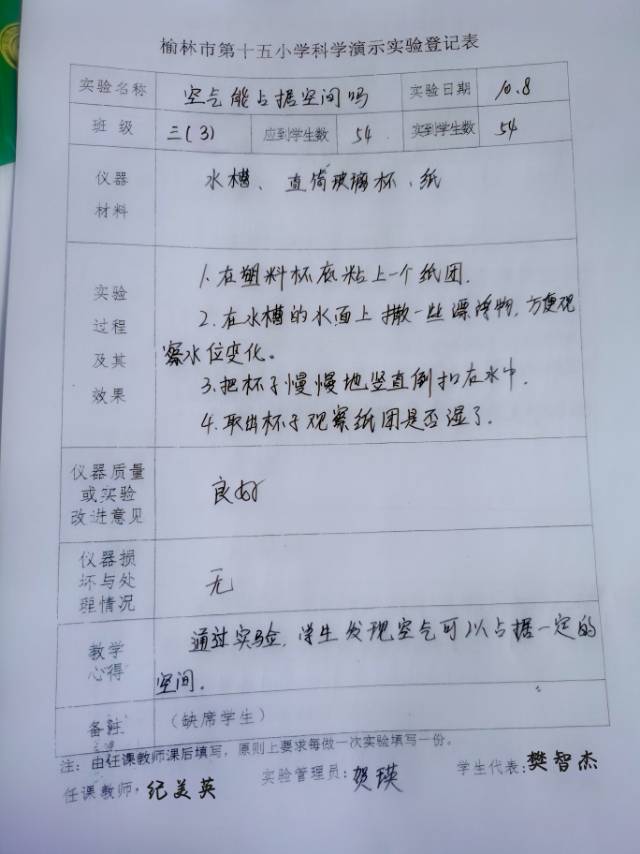 榆林市第十五小学科学演示实验登记表
实验名称 空气能占据空间吗 实验日期 10.8
班级 三(3) 应到学生数 54 实到学生数 54
仪器 水槽、直筒玻璃杯、纸
材料
1.在塑料杯底粘上一个纸团.
实验
2.在水槽的水面上撒一些漂浮物,方便观
过程
察水位变化。
及其
3.把杯子慢慢地竖直倒扣在水中.
效果
4.取出杯子观察纸团是否湿了.
仪器质量
或实验 良好
改进意见
仪器损
坏与处 无
理情况
通过实验,学生发现空气可以占据一定的
教学
心得 空间.
备注 (缺席学生)
注:由任课教师课后填写,原则上要求每做一次实验填写一份。
任课教师:纪美英 实验管理员:贺瑛 学生代表:樊智杰